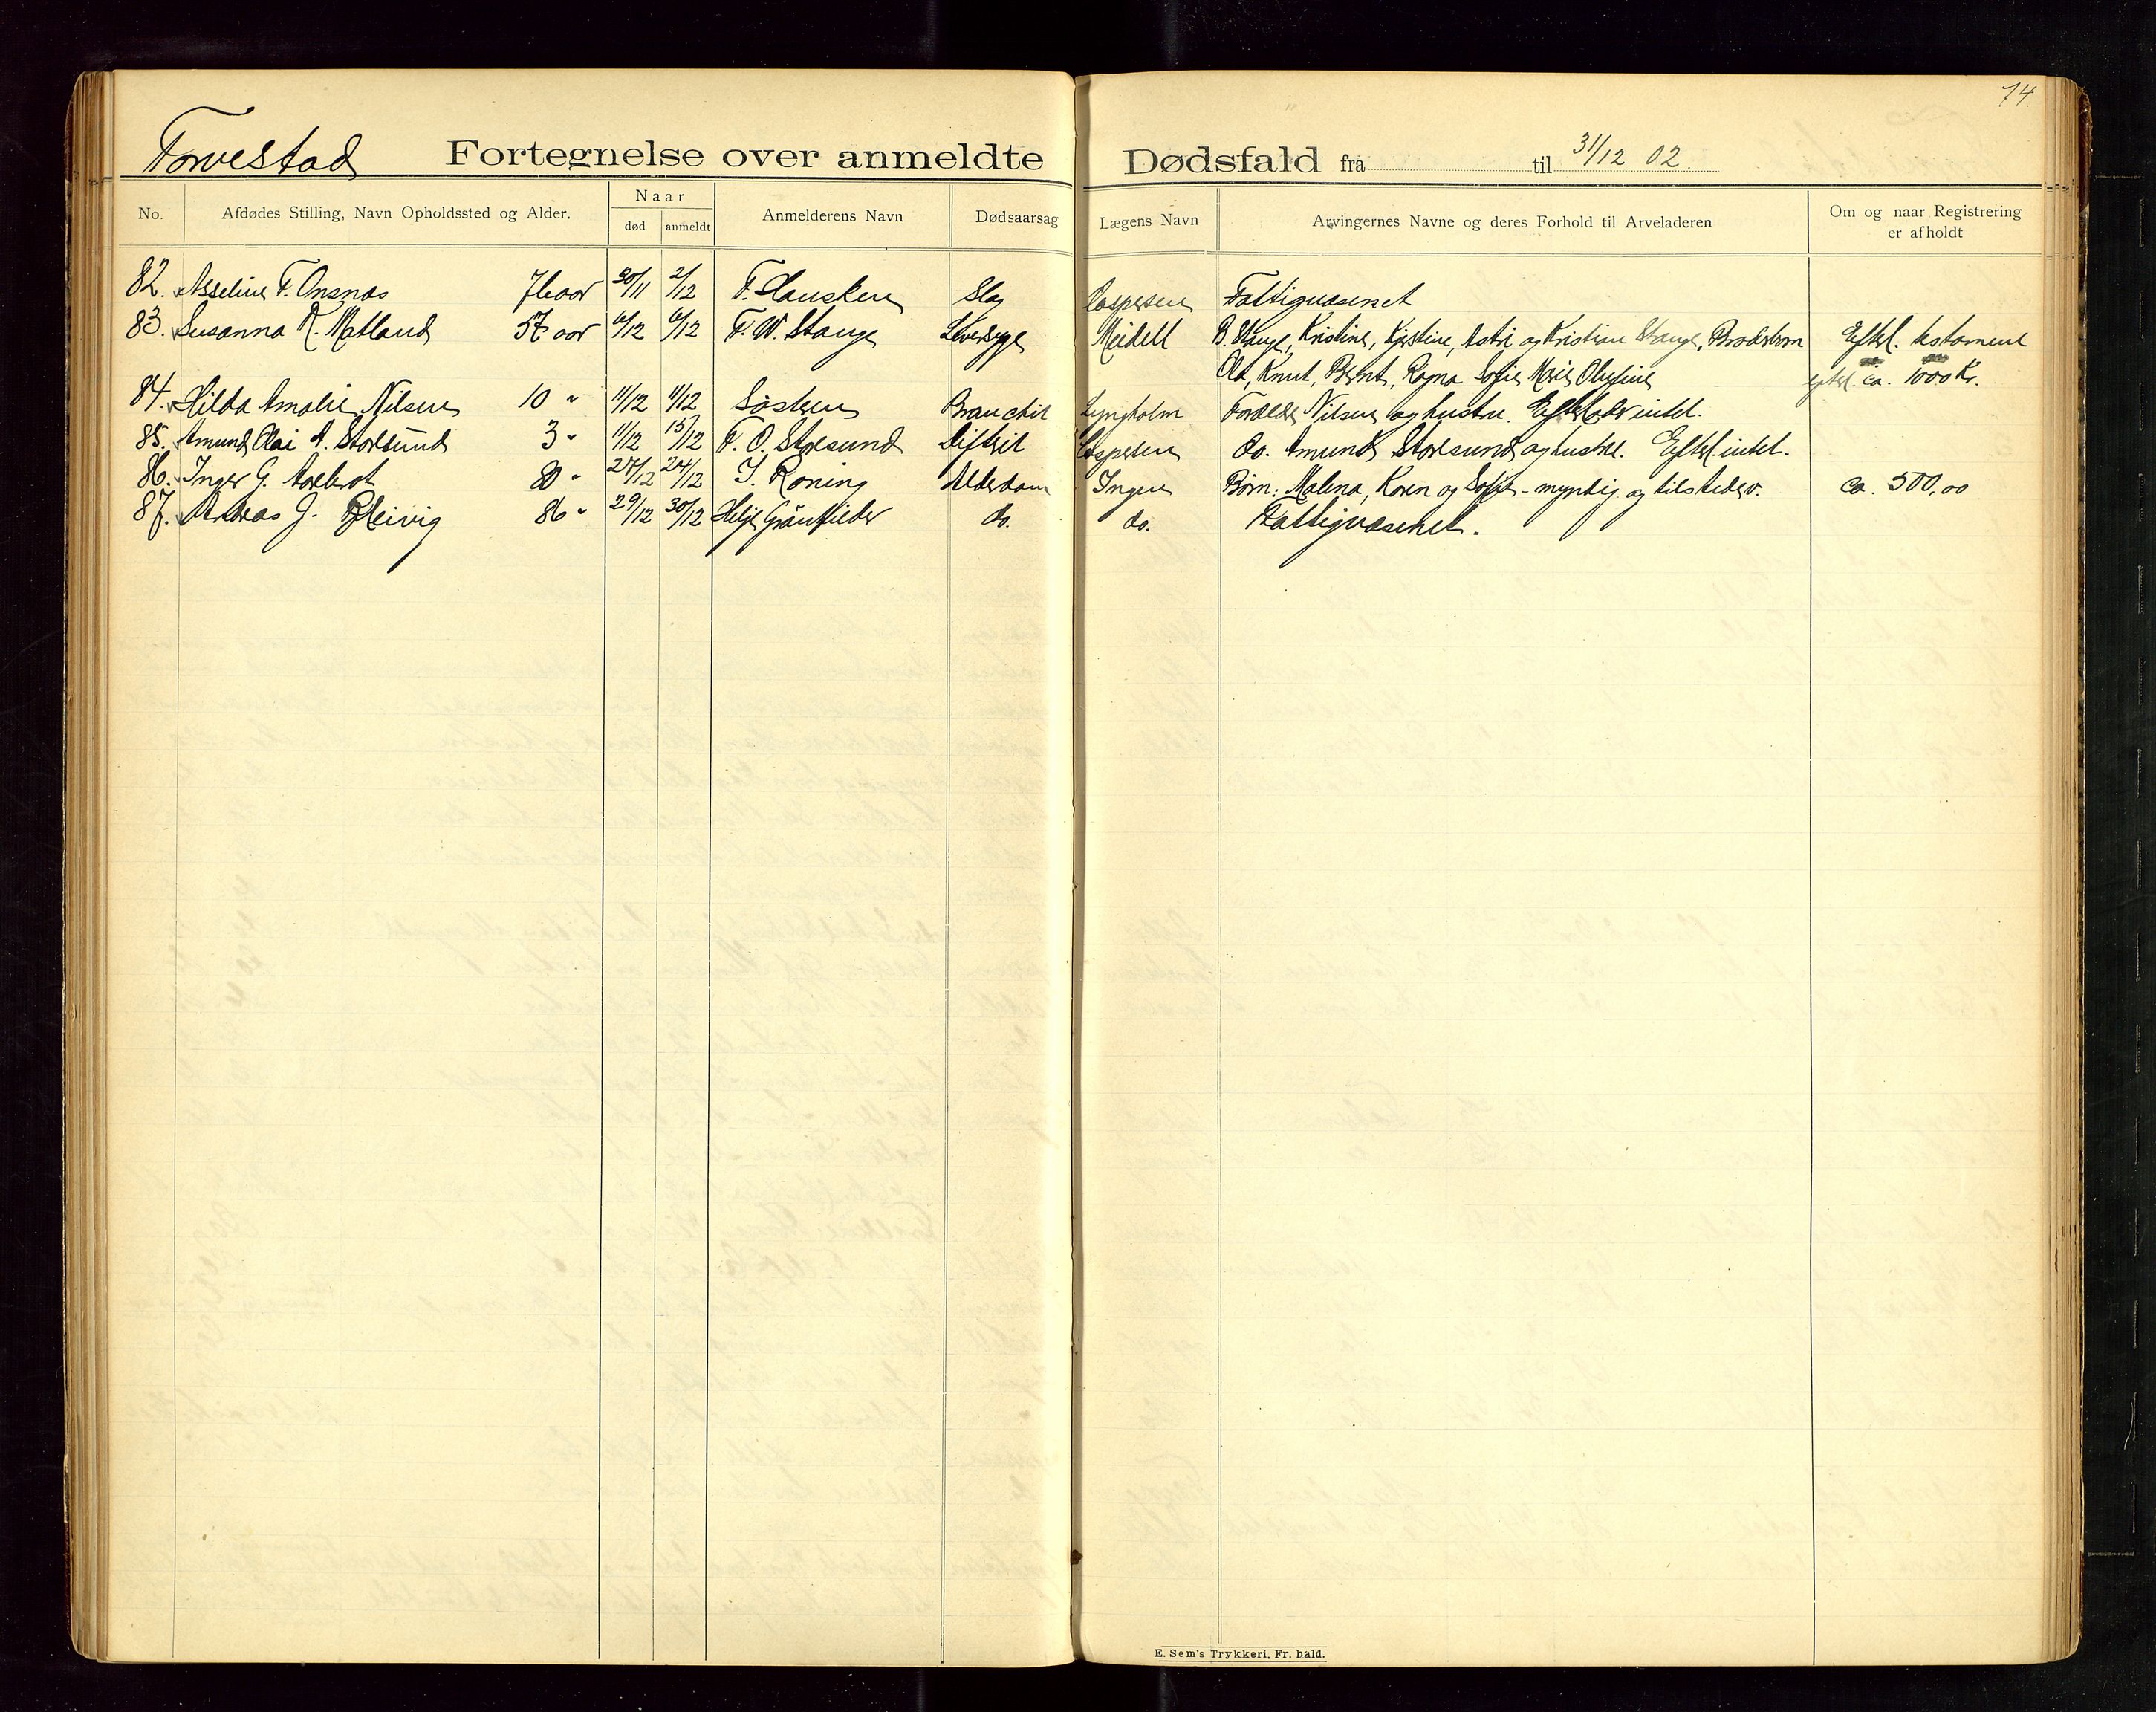 74
Torvestad Fortegnelse over anmeldte Dødsfald fra til 31/12 02.
No. Afdødes Stilling, Navn Opholdssted og Alder. Naar død anmeldt Anmelderens Navn Dødsaarsag Lægens Navn Arvingernes Navne og deres Forhold til Arveladeren Om og naar Registrering er afholdt
82. Asseline T. Onsnæs 76 aar 30/11 2/12 T. Hausken Slag Caspersen Fattigvæsenet
83. Susanna K. Matland 57 aar 6/12 6/12 T. W. Stange Leversyge Meidell B. Stange, Kristine, Kjerstine, Astri og Kristian Stange, Broderbørn Efterl. testament
Ola, Knut, Bernt, Ragna Sofie Marie Olufine efterl. ca. 1000 Kr.
84. Hilda Amalie Nilsen 10 " 11/12 11/12 Søsteren Bronchit Lyngholm Forældre Nilsen og hustru. Efterlader intet.
85. Amund Olai A. Storesund 3 " 11/12 15/12 T. O. Storesund Difterit Caspersen do. Amund Storesund og hustru. Efterl. intet.
86. Inger G. 80 " 24/12 24/12 I. Røning Alderdom Ingen Børn: Malena, Karen og Sofie - myndig og tilstedev. ca. 500,00
87. Andreas G. Bleivig 86 " 29/12 30/12 Helge do. do. Fattigvæsenet.
E. Sem's Trykkeri, Fr. hald.